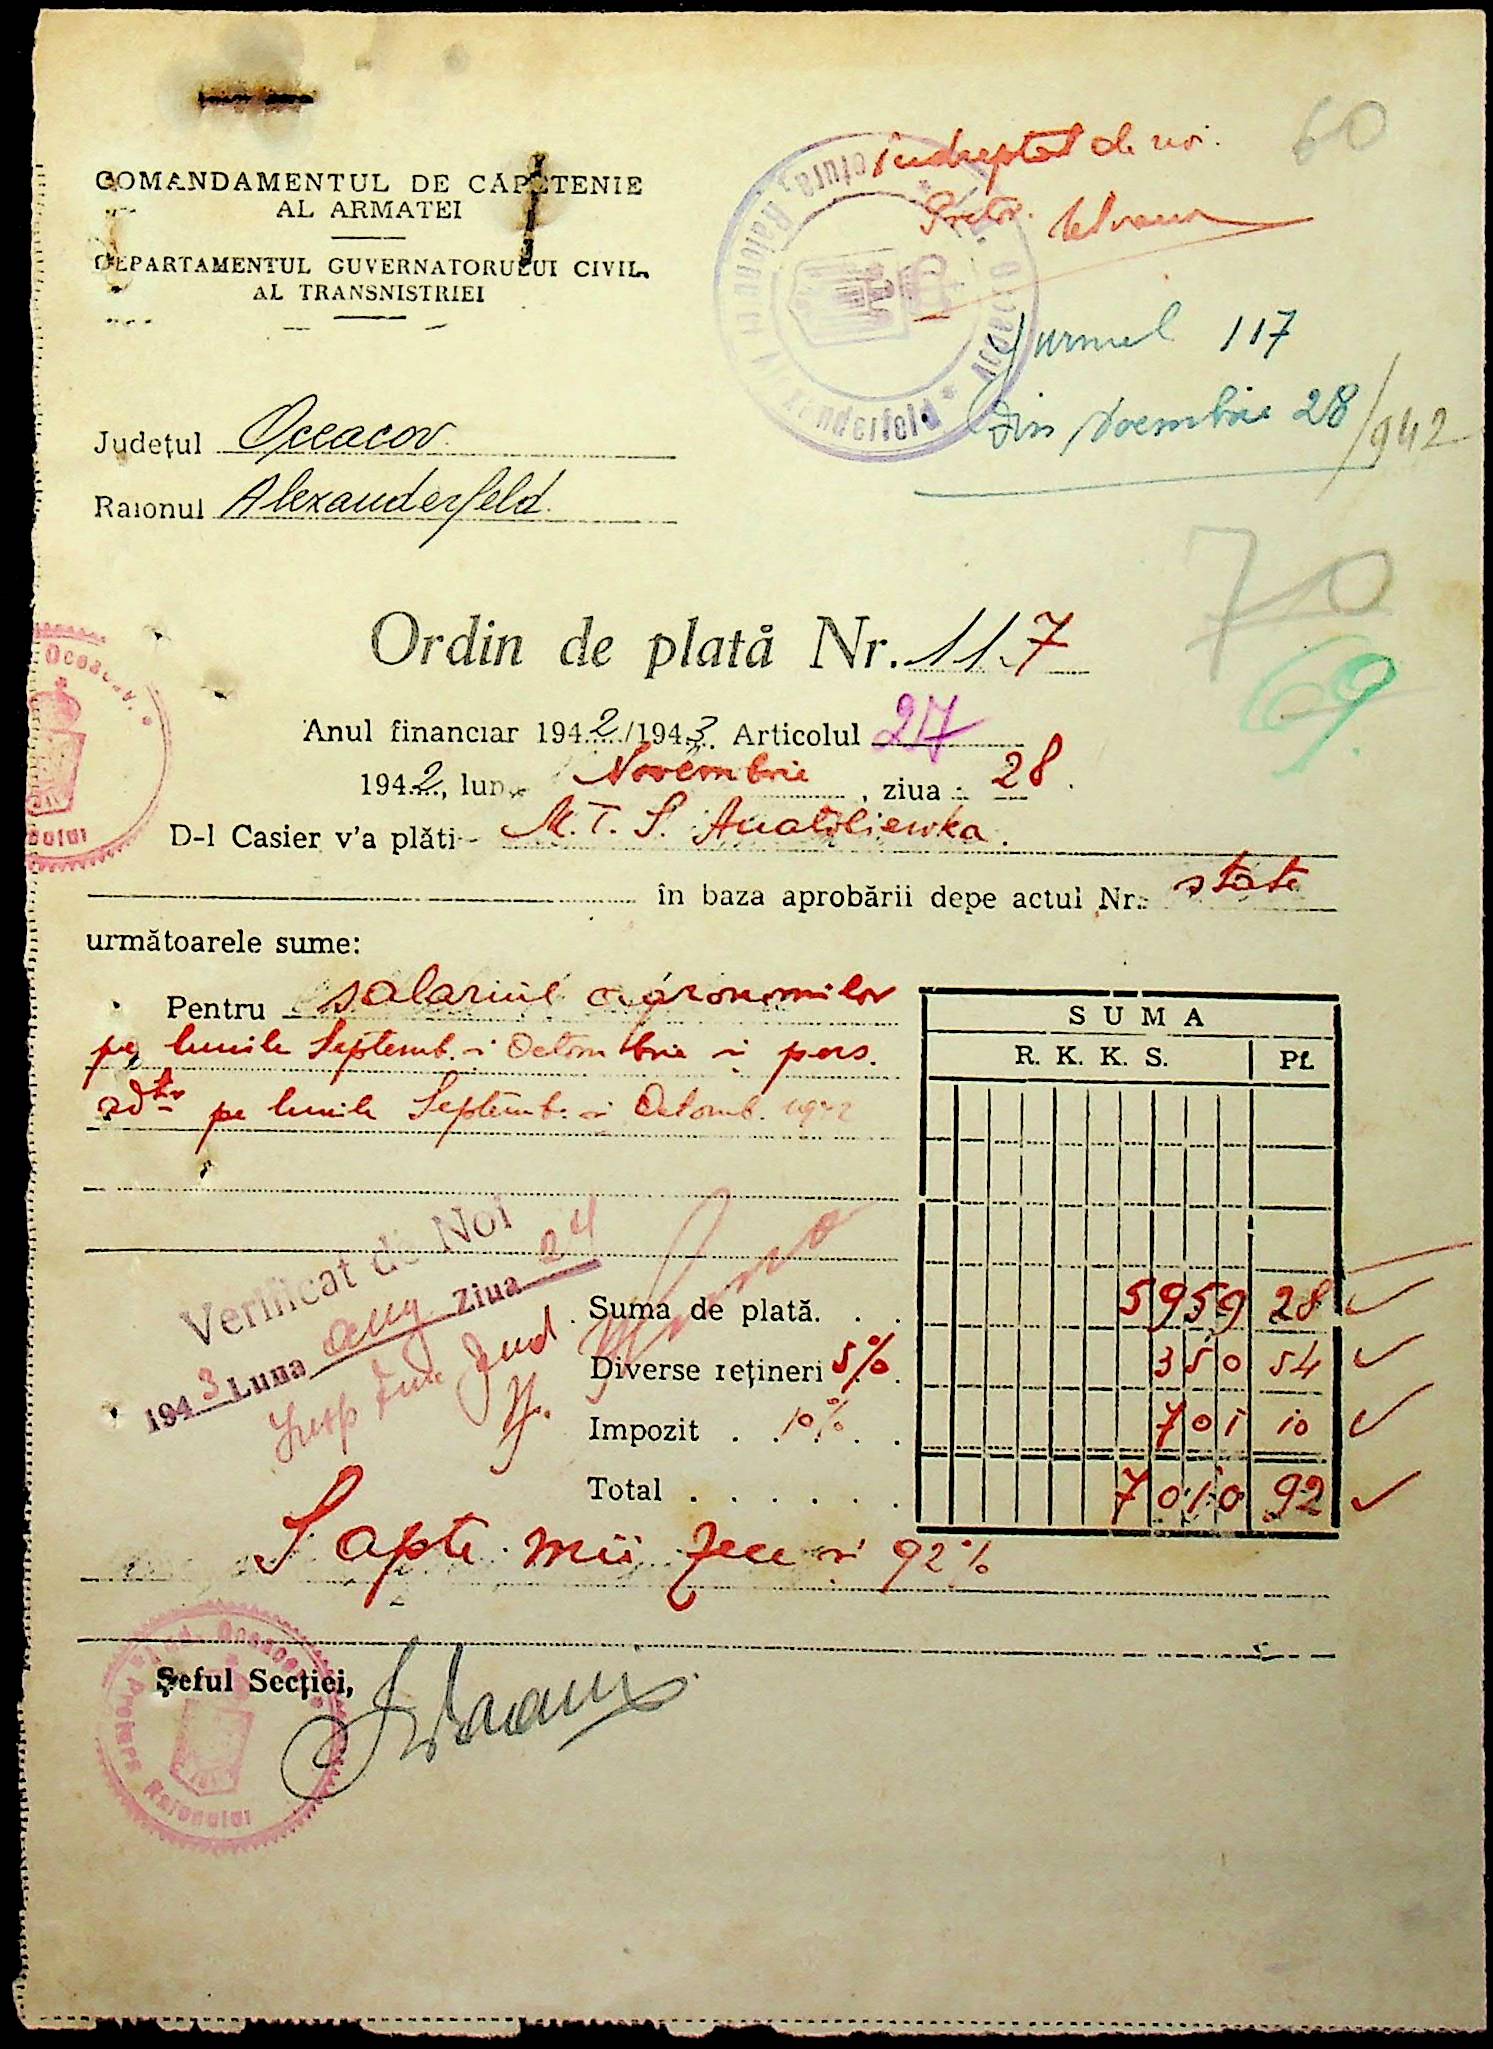 60
COMANDAMENTUL DE CAPETENIE
AL ARMATEI
DEPARTAMENTUL GUVERNATORULUI CIVIL
AL TRANSNISTRIEI
Îndreptat de noi.
Pretor.
Jurnal 117
din Noembrie 28/942
Județul Oceacov.
Raionul Alexanderfeld.
70
69.
Ordin de plată Nr. 117
Anul financiar 1942/1943. Articolul 27
1942, luna Novembrie, ziua 28.
D-l Casier v'a plăti M.T.S. Anatoliewka.
în baza aprobării depe actul Nr. state
următoarele sume:
Pentru salariul agronomilor
pe lunile Septemb. și Octombrie și pers.
adtiv pe lunile Septemb. și Octomb. 1942
SUMA
R. K. K. S. Pf.
Verificat de Noi
1943 Luna aug Ziua 24
Insp Fin Jud
Suma de plată. . . 5959 28
Diverse rețineri 5% . 350 54
Impozit . 10% . . 701 10
Total . . . . . . 7010 92
Șapte mii zece și 92%
Șeful Secției,
Jud. Oceacov
Pretura Raionului